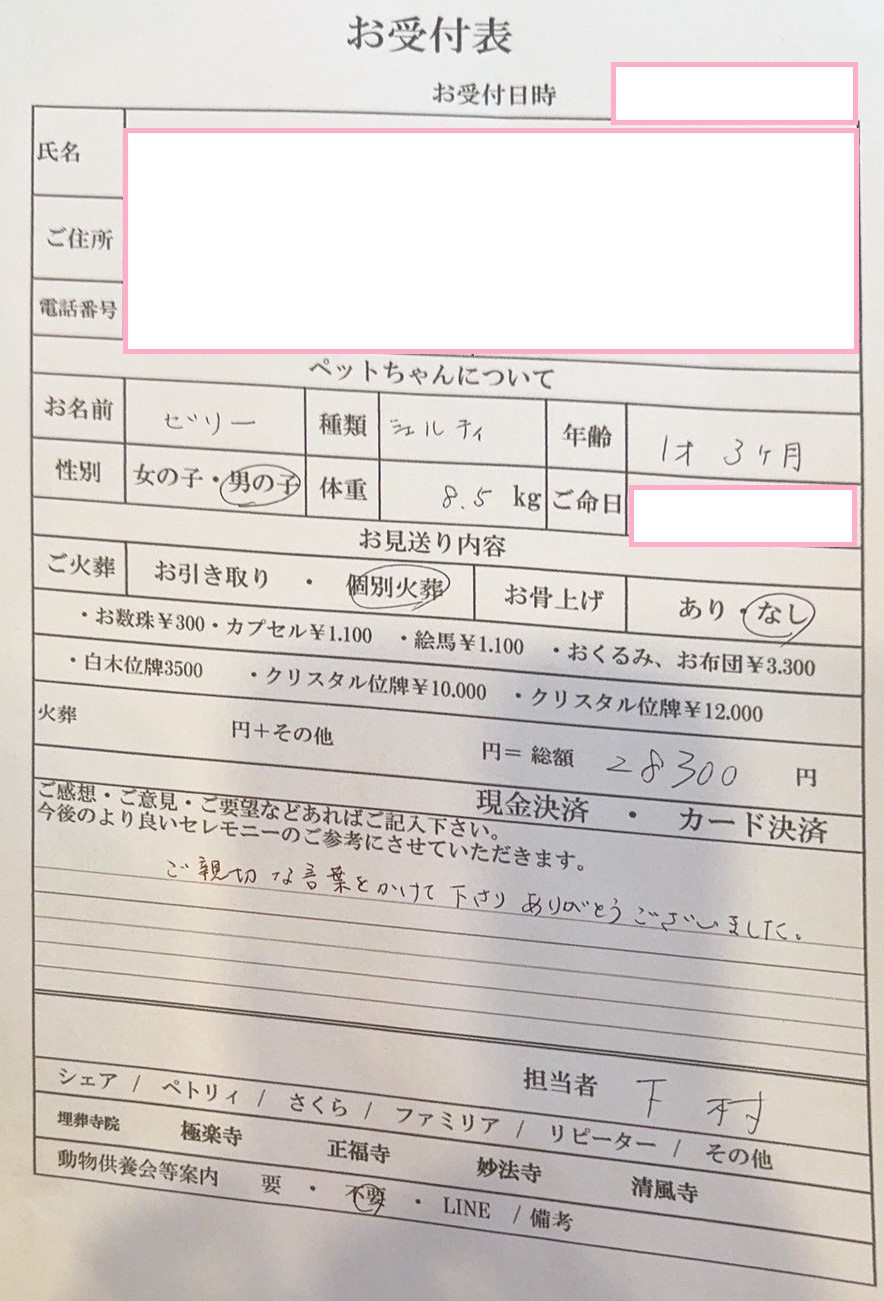 お受付表
お受付日時
氏名
ご住所
電話番号
ペットちゃんについて
お名前 ゼリー 種類 シェルティ 年齢 1才 3ヶ月
性別 女の子・男の子 体重 8.5 kg ご命日
お見送り内容
ご火葬 お引き取り ・ 個別火葬 お骨上げ あり・なし
・お数珠¥300・カプセル¥1.100 ・絵馬¥1.100 ・おくるみ、お布団¥3.300
・白木位牌3500 ・クリスタル位牌¥10.000 ・クリスタル位牌¥12.000
火葬 円+その他 円= 総額 28300 円
現金決済 ・ カード決済
ご感想・ご意見・ご要望などあればご記入下さい。
今後のより良いセレモニーのご参考にさせていただきます。
ご親切な言葉をかけて下さり ありがとうございました。
担当者 下村
シェア / ペトリィ / さくら / ファミリア / リピーター / その他
埋葬寺院 極楽寺 正福寺 妙法寺 清風寺
動物供養会等案内 要 ・ 不要 ・ LINE / 備考